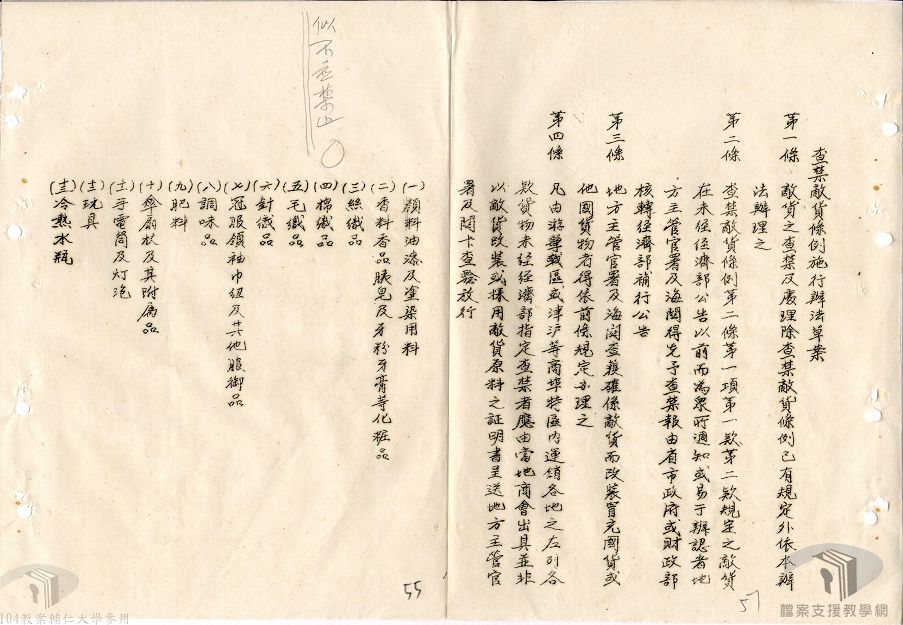 查禁敵貨條例施行辦法草案
第一條 敵貨之查禁及處理除查禁敵貨條例已有規定外依本辦
法辦理之
第二條 查禁敵貨條例第二條第一項第一款第二款規定之敵貨
在未經經濟部公告以前而為眾所週知或易于辦認者地
方主管官署及海關得先予查禁報由省市政府或財政部
核轉經濟部補行公告
第三條 地方主管官署及海關查獲確係敵貨而改裝冒充國貨或
他國貨物者得依前條規定办理之
第四條 凡由游擊戰區或津沪等商埠特區內運銷各地之左列各
款貨物未經經濟部指定查禁者應由當地商會出具並非
以敵貨改裝或採用敵貨原料之証明書呈送地方主管官
署及関卡查驗放行
57
似不应禁止
(一)顏料油漆及塗染用料
(二)香料香品胰皂及牙粉牙膏等化粧品
(三)絲織品
(四)棉織品
(五)毛織品
(六)針織品
(七)冠服領袖巾纽及其他服御品
(八)調味品
(九)肥料
(十)傘扇杖及其附屬品
(十一)手電筒及灯泡
(十二)玩具
(十三)冷熱水瓶
55
104教案輔仁大學參用
檔案支援教學網